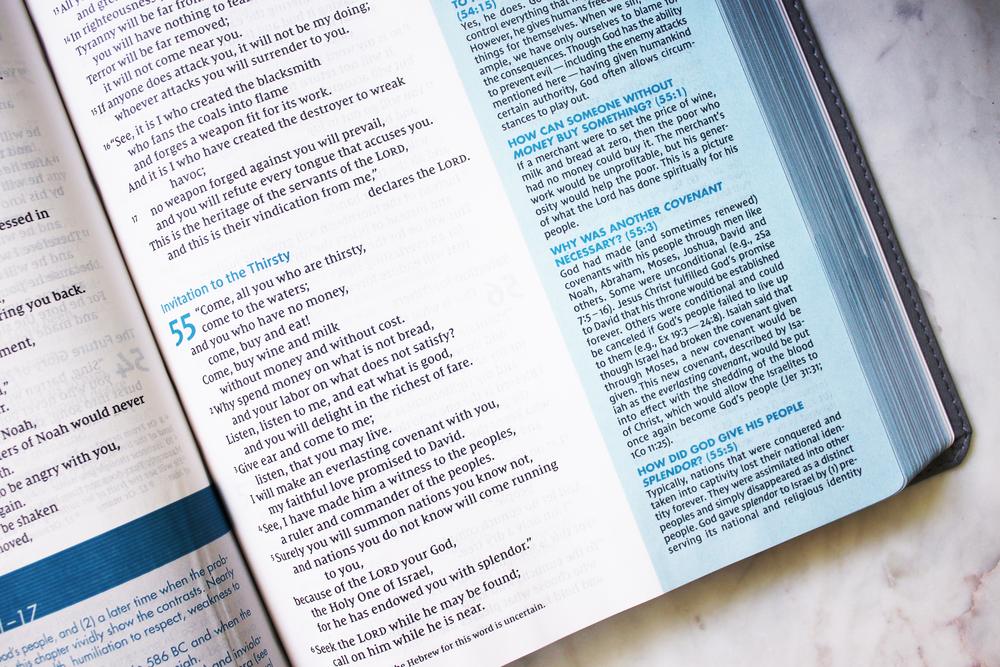 essed in
ring you back.
ment,
Noah,
ers of Noah would never
o be angry with you,
gain.
be shaken
oved,
1–17
od's people, and (2) a later time when the prob-
this chapter vividly show the contrasts. Nearly
humiliation to respect, weakness to
586 BC and when the
14 In righteousness
Tyranny will be far from
you will have nothing to fear
Terror will be far removed;
it will not come near you.
15 If anyone does attack you, it will not be my doing;
whoever attacks you will surrender to you.
16 "See, it is I who created the blacksmith
who fans the coals into flame
and forges a weapon fit for its work.
And it is I who have created the destroyer to wreak
havoc;
17 no weapon forged against you will prevail,
and you will refute every tongue that accuses you.
This is the heritage of the servants of the LORD,
and this is their vindication from me,"
declares the LORD.
Invitation to the Thirsty
55 "Come, all you who are thirsty,
come to the waters;
and you who have no money,
come, buy and eat!
Come, buy wine and milk
without money and without cost.
2 Why spend money on what is not bread,
and your labor on what does not satisfy?
Listen, listen to me, and eat what is good,
and you will delight in the richest of fare.
3 Give ear and come to me;
listen, that you may live.
I will make an everlasting covenant with you,
my faithful love promised to David.
4 See, I have made him a witness to the peoples,
a ruler and commander of the peoples.
5 Surely you will summon nations you know not,
and nations you do not know will come running
to you,
because of the LORD your God,
the Holy One of Israel,
for he has endowed you with splendor."
6 Seek the LORD while he may be found;
call on him while he is near.
the Hebrew for this word is uncertain.
(54:15)
Yes, he does. Go
control everything that
However, he gives humans freed
things for themselves. When we sin,
ample, we have only ourselves to blame for
the consequences. Though God has the ability
to prevent evil — including the enemy attacks
mentioned here — having given humankind
certain authority, God often allows circum-
stances to play out.
HOW CAN SOMEONE WITHOUT
MONEY BUY SOMETHING? (55:1)
If a merchant were to set the price of wine,
milk and bread at zero, then the poor who
had no money could buy it. The merchant's
work would be unprofitable, but his gener-
osity would help the poor. This is a picture
of what the Lord has done spiritually for his
people.
WHY WAS ANOTHER COVENANT
NECESSARY? (55:3)
God had made (and sometimes renewed)
covenants with his people through men like
Noah, Abraham, Moses, Joshua, David and
others. Some were unconditional (e.g., 2Sa
7:5–16). Jesus Christ fulfilled God's promise
to David that his throne would be established
forever. Others were conditional and could
be canceled if God's people failed to live up
to them (e.g., Ex 19:3—24:8). Isaiah said that
though Israel had broken the covenant given
through Moses, a new covenant would be
given. This new covenant, described by Isa-
iah as the everlasting covenant, would be put
into effect with the shedding of the blood
of Christ, which would allow the Israelites to
once again become God's people (Jer 31:31;
1Co 11:25).
HOW DID GOD GIVE HIS PEOPLE
SPLENDOR? (55:5)
Typically, nations that were conquered and
taken into captivity lost their national iden-
tity forever. They were assimilated into other
peoples and simply disappeared as a distinct
people. God gave splendor to Israel by (1) pre-
serving its national and religious identity